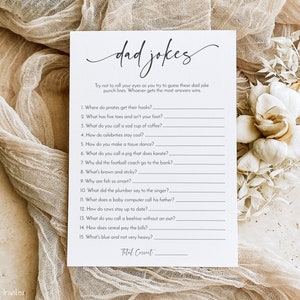 dad jokes
Try not to roll your eyes as you try to guess these dad joke
punch lines. Whoever gets the most answers wins.
1. Where do pirates get their hooks?
2. What has five toes and isn't your foot?
3. What do you call a sad cup of coffee?
4. How do celebrities stay cool?
5. How do you make a tissue dance?
6. What do you call a pig that does karate?
7. Why did the football coach go to the bank?
8. What's brown and sticky?
9. Why are fish so smart?
10. What did the plumber say to the singer?
11. What does a baby computer call his father?
12. How do cows stay up to date?
13. What do you call a beehive without an exit?
14. How does cereal pay the bills?
15. What's blue and not very heavy?
Total Correct: